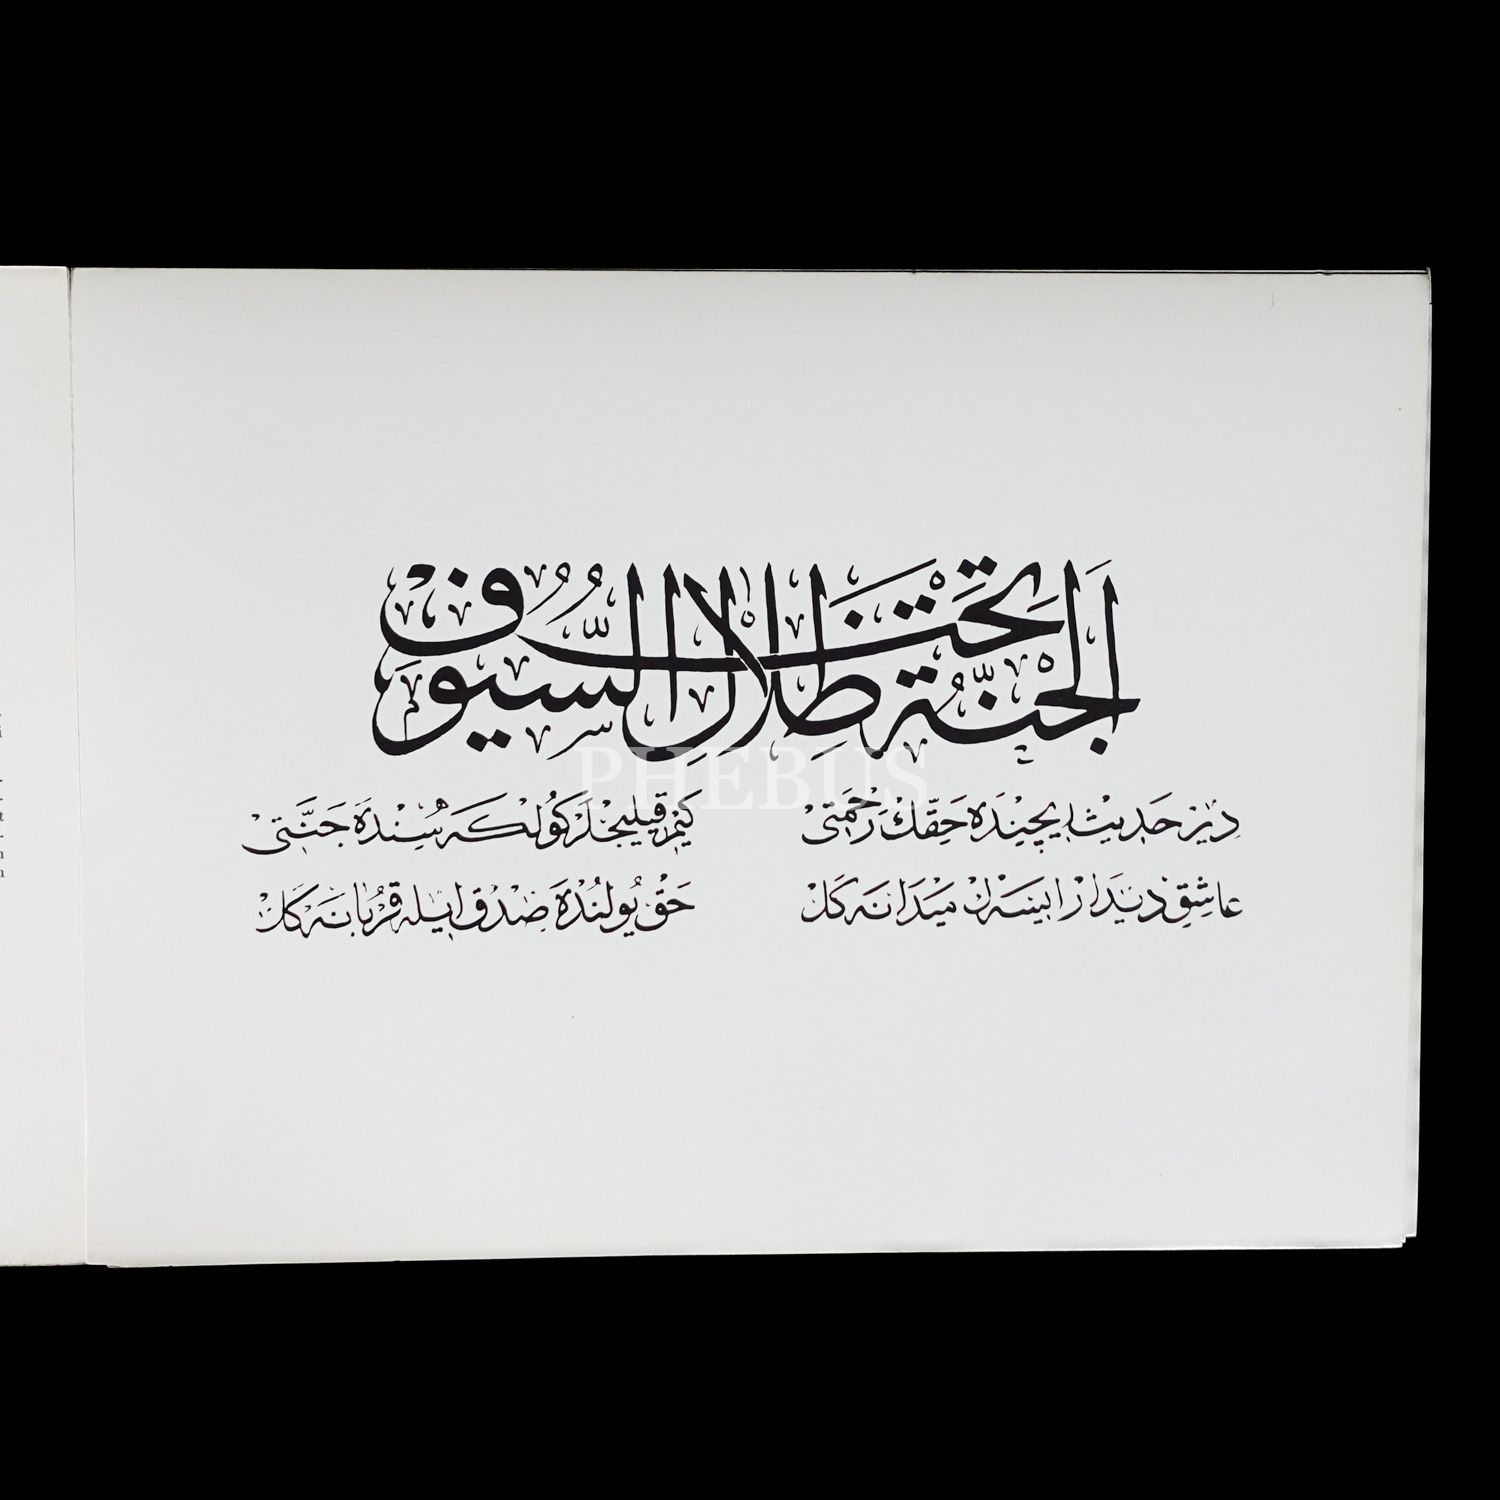 الجنّة تحت ظلال السّيوف
دير حديث ايچنده حقّك رحمتى كيم قيليجلر كولكه سنده جنّتى
عاشق ديدار ايسه ڭ ميدانه كل حق يولنده صدق ايله قربانه كل
PHEBUS